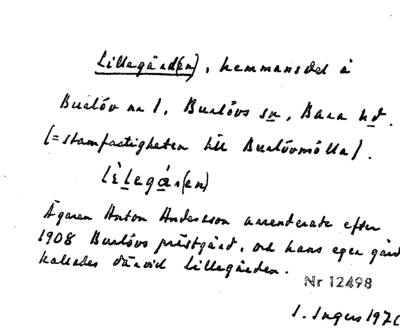 Lillegård(en), hemmansdel å
Burlöv nr 1, Burlövs sn, Bara hd.
(=stamfastigheten till Burlövmölla).
lìlegár(en)
Ägaren Anton Andersson arrenderade efter
1908 Burlövs prästgård, och hans egen gård
kallades därvid Lillegården.
Nr 12498
I. Ingers 1970